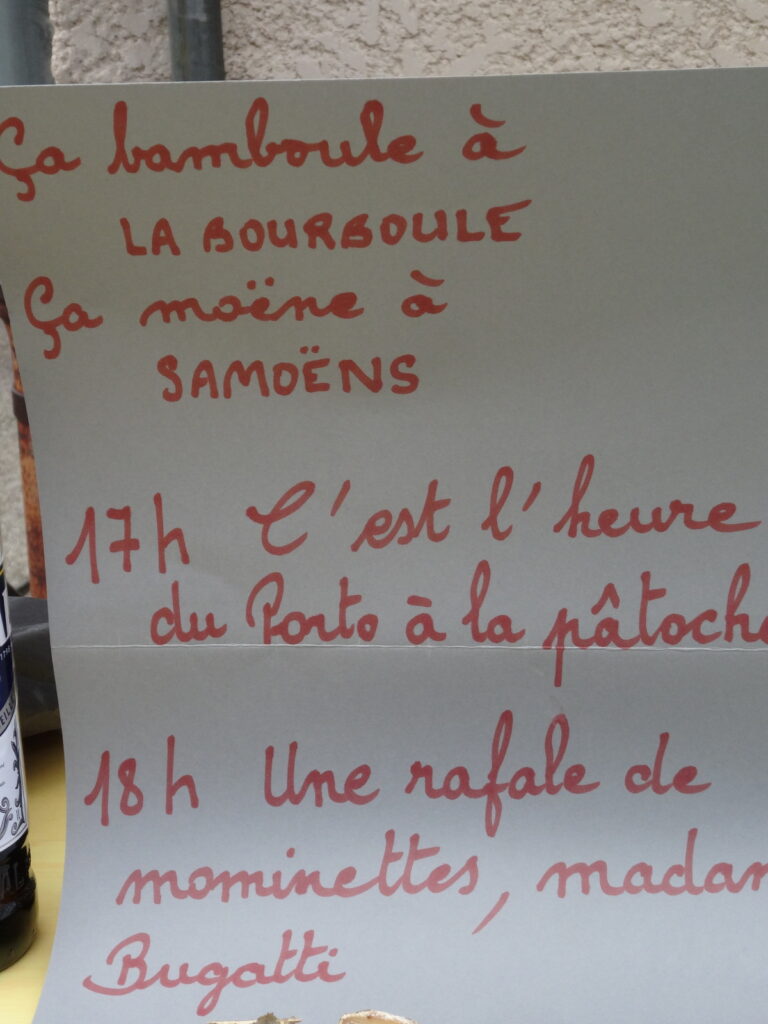 Ça bamboule à
LA BOURBOULE
Ça moëne à
SAMOËNS
17h C'est l'heure
du Porto à la pâtoche
18h Une rafale de
mominettes, madam
Bugatti